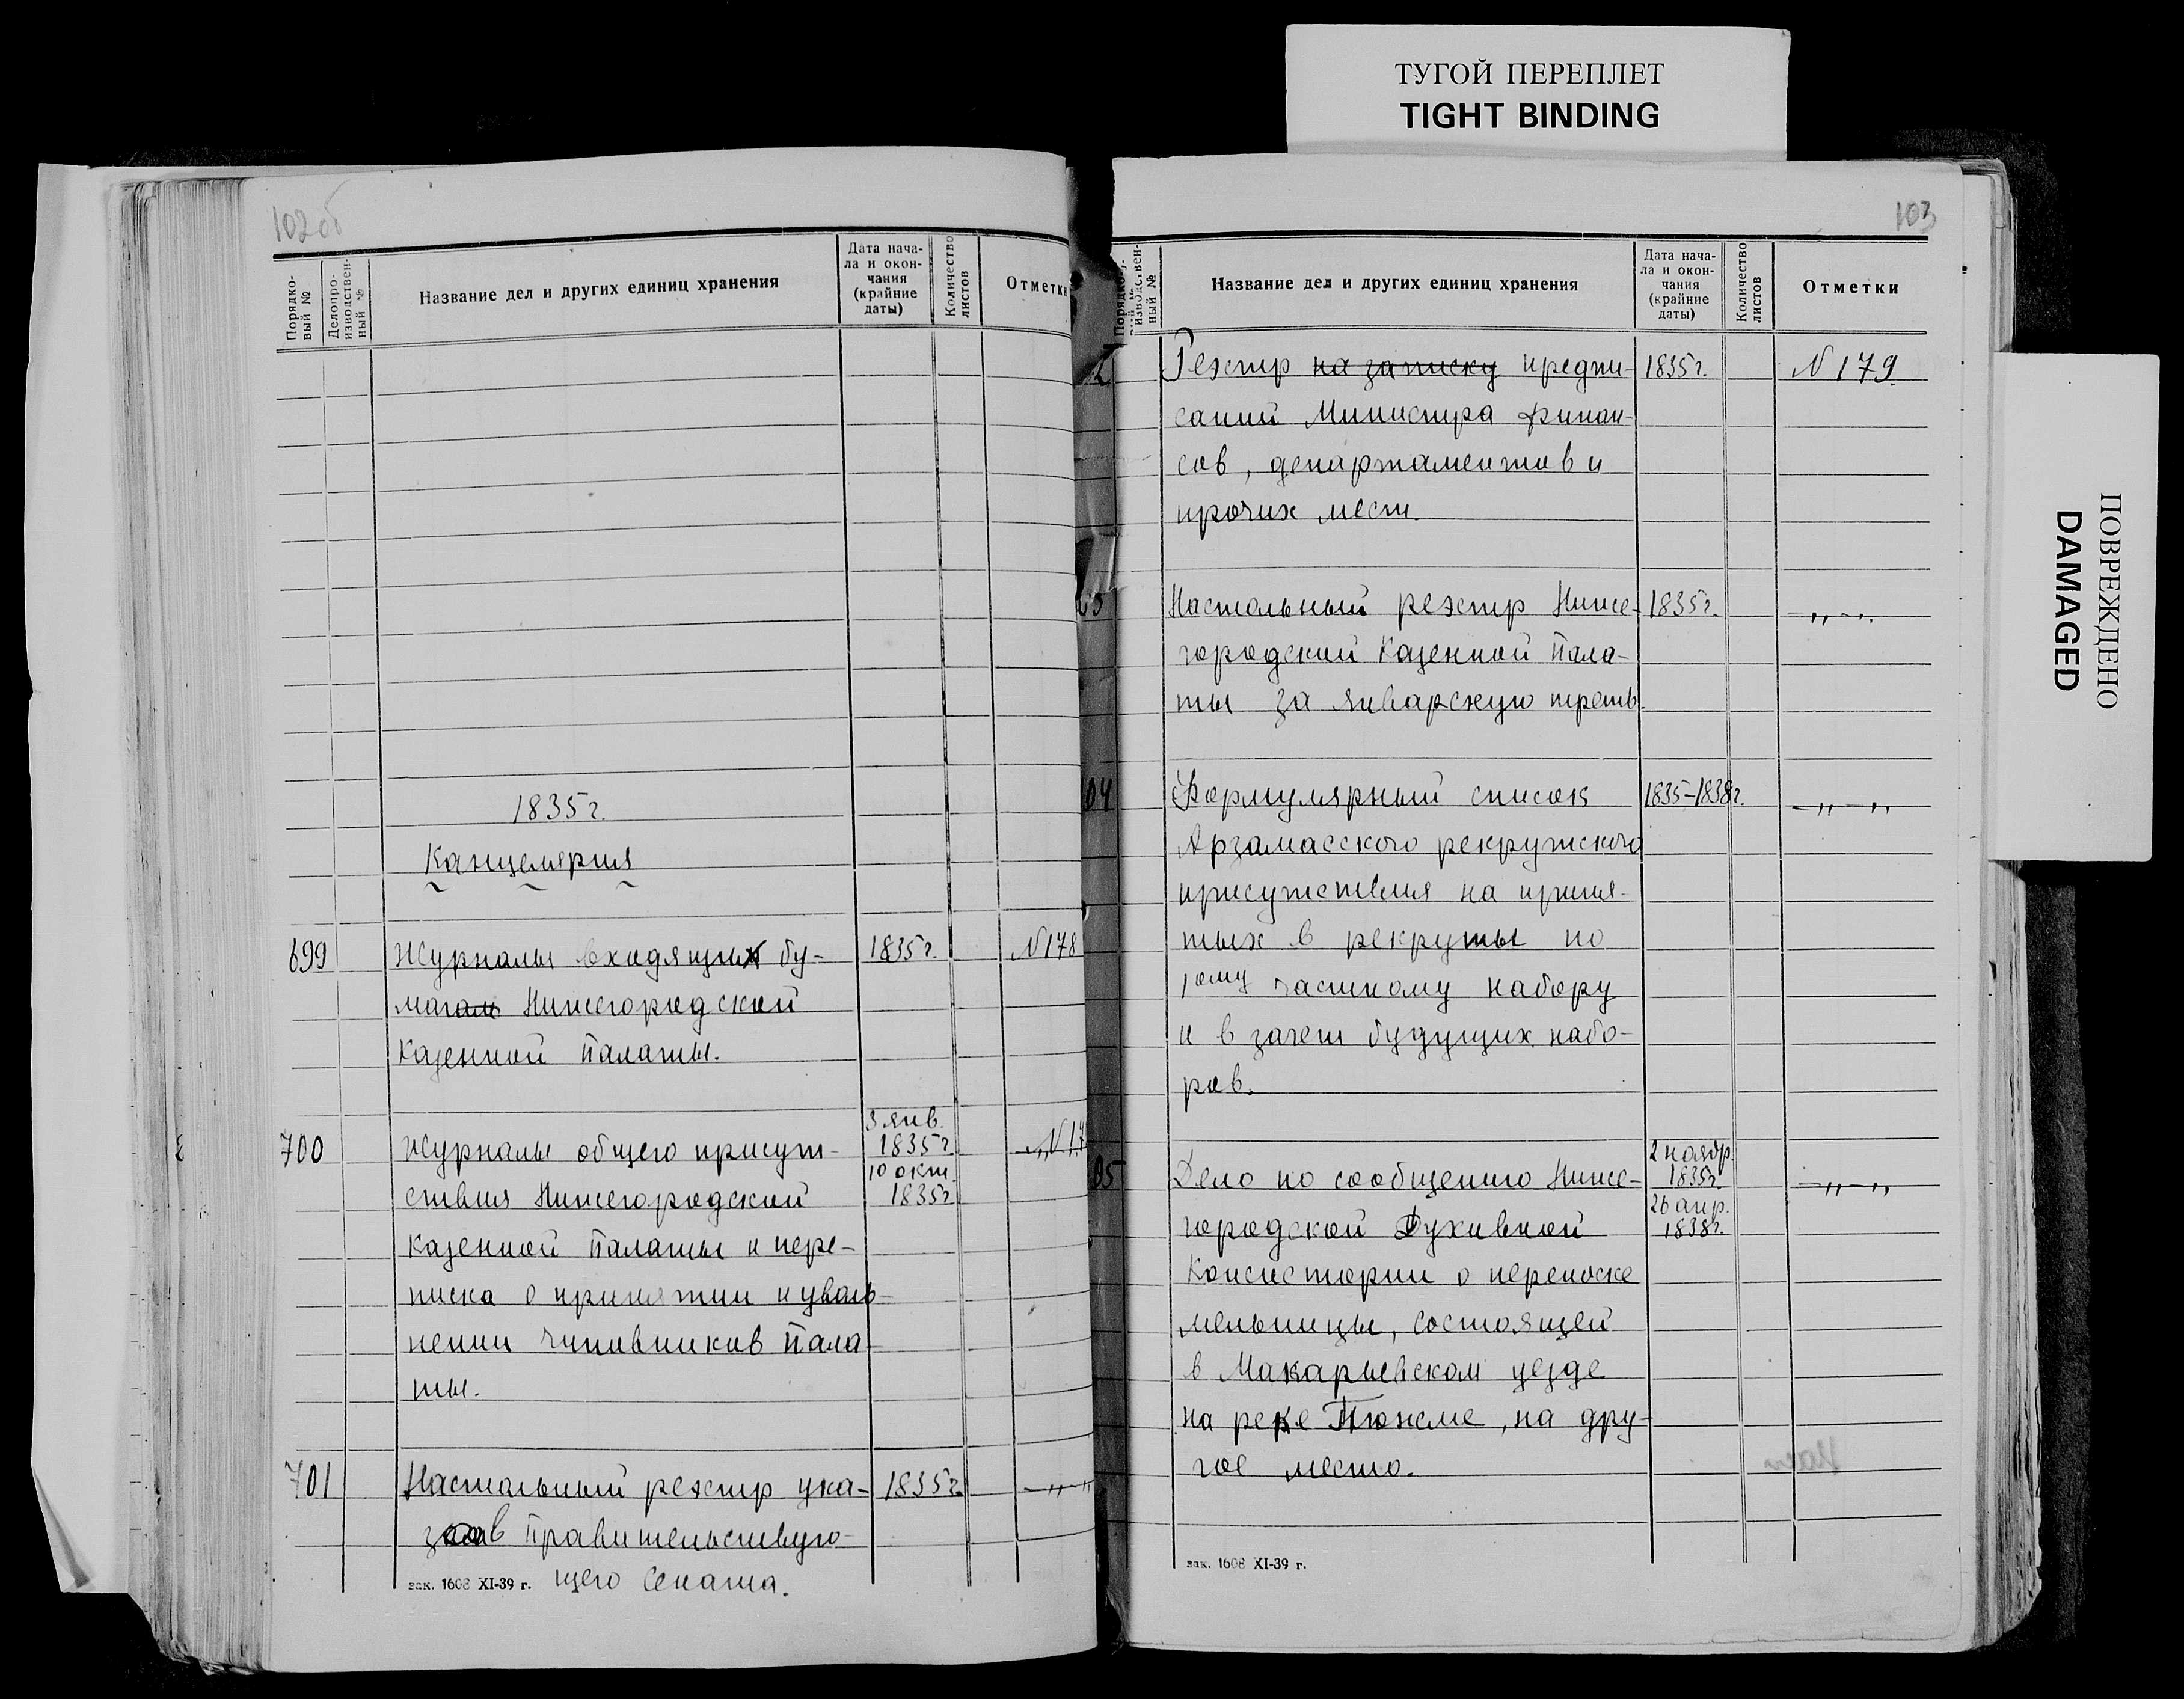 ТУГОЙ ПЕРЕПЛЕТ
TIGHT BINDING
ПОВРЕЖДЕНО
DAMAGED
102об
Порядко-
вый №
Делопро-
изводствен-
ный №
Название дел и других единиц хранения
Дата нача-
ла и окон-
чания
(крайние
даты)
Количество
листов
Отметки
1835г.
Канцелярия
699 Журналы входящих бу- 1835г. N178
магам Нижегородской
Казенной Палаты.
3 янв.
700 Журналы общего присут- 1835г. N17
10 окт.
ствия Нижегородской 1835г.
Казенной Палаты и пере-
писка о принятии и уволь-
нении чиновников Пала-
ты.
701 Настольный реэстр ука- 1835г. -"-"
зов Правительствую-
щего Сената.
зак. 1608 XI-39 г.
103
Порядко-
вый №
изводствен-
ный №
Название дел и других единиц хранения
Дата нача-
ла и окон-
чания
(крайние
даты)
Количество
листов
Отметки
2 Реэстр на записку предпи- 1835г. N179
саний Министра финан-
сов, департаментов и
прочих мест.
03 Настольный реэстр Ниже- 1835г. -"-"
городской Казенной Пала-
ты за январскую треть.
04 Формулярный список 1835-1838г. -"-"
Арзамасского рекрутского
присутствия на приня-
тых в рекруты по
1ому частному набору
и в зачет будущих набо-
ров.
2 ноябр.
05 Дело по сообщению Ниже- 1835г. -"-"
26 апр.
городской Духовной 1838г.
Консистории о переноске
мельницы, состоящей
в Макарьевском уезде
на реке Пюжме, на дру-
гое место.
зак. 1608 XI-39 г.